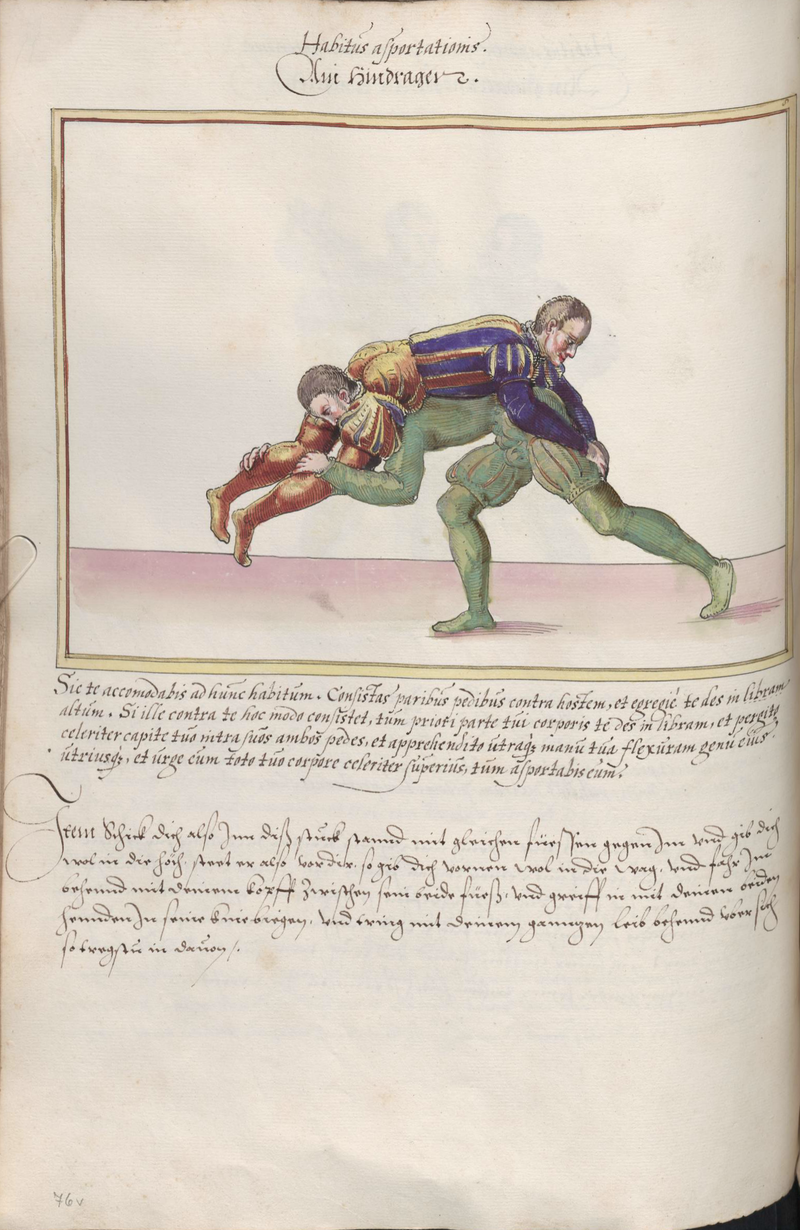 Habitus asportationis.
Ain Hindragen.
Sic te accomodabis ad hunc habitum. Consistas paribus pedibus contra hostem, et egregiè te des in libram
altum. Si ille contra te hoc modo consistet, tum priori parte tui corporis te des in libram, et pergito
celeriter capite tuo intra suos ambos pedes, et apprehendito utraq; manu tua flexuram genu eius
utriusq;, et urge eum toto tuo corpore celeriter superius, tum asportabis eum.
Item Schick dich also Inn diß stuck stannd mit gleichen füessen gegen Im vnd gib dich
wol in die höch, steet er also vor dir, so gib dich vornen wol in die wag, vnd fahr Im
behennd mit deinem kopff zwischen sein beide füeß, vnd greiff in mit deinen beiden
hennden In seine kniebiegen, vnd tring mit deinem ganntzen leib behennd vber sich
so tregstu in dauon /.
76v